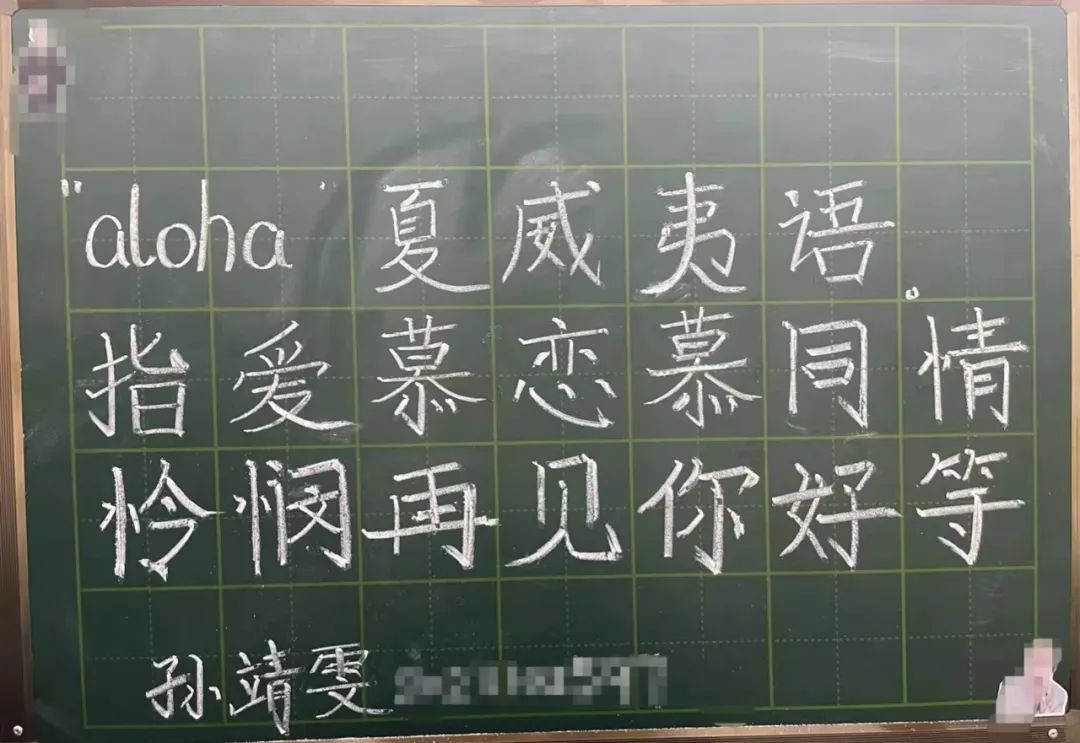 "aloha" 夏威夷语。
指爱慕恋慕同情
怜悯再见你好等
孙靖雯